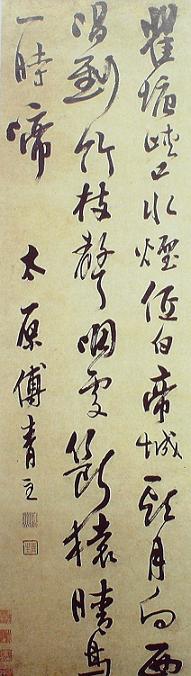 瞿塘峽口水煙低白帝城頭月向西
唱到竹枝聲咽處斷猿晴鳥
一時啼
太原傅青主